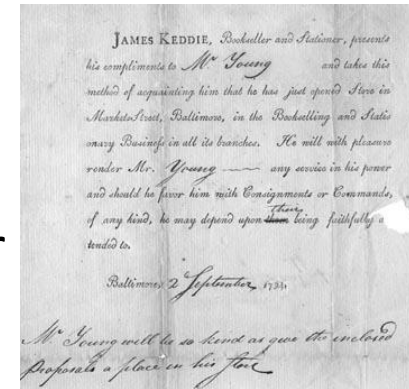 JAMES KEDDIE, Bookseller and Stationer, presents
his compliments to Mr Young and takes this
method of acquainting him that he has just opened Store in
Market-Street, Baltimore, in the Bookselling and Statio
onary Business in all its branches. He will with pleasure
render Mr. Young any service in his power
and should he favor him with Consignments or Commands,
of any kind, he may depend upon them their being faithfully a
tended to.
Baltimore, 2 September 1794
Mr Young will be so kind as give the inclosed
proposals a place in his store